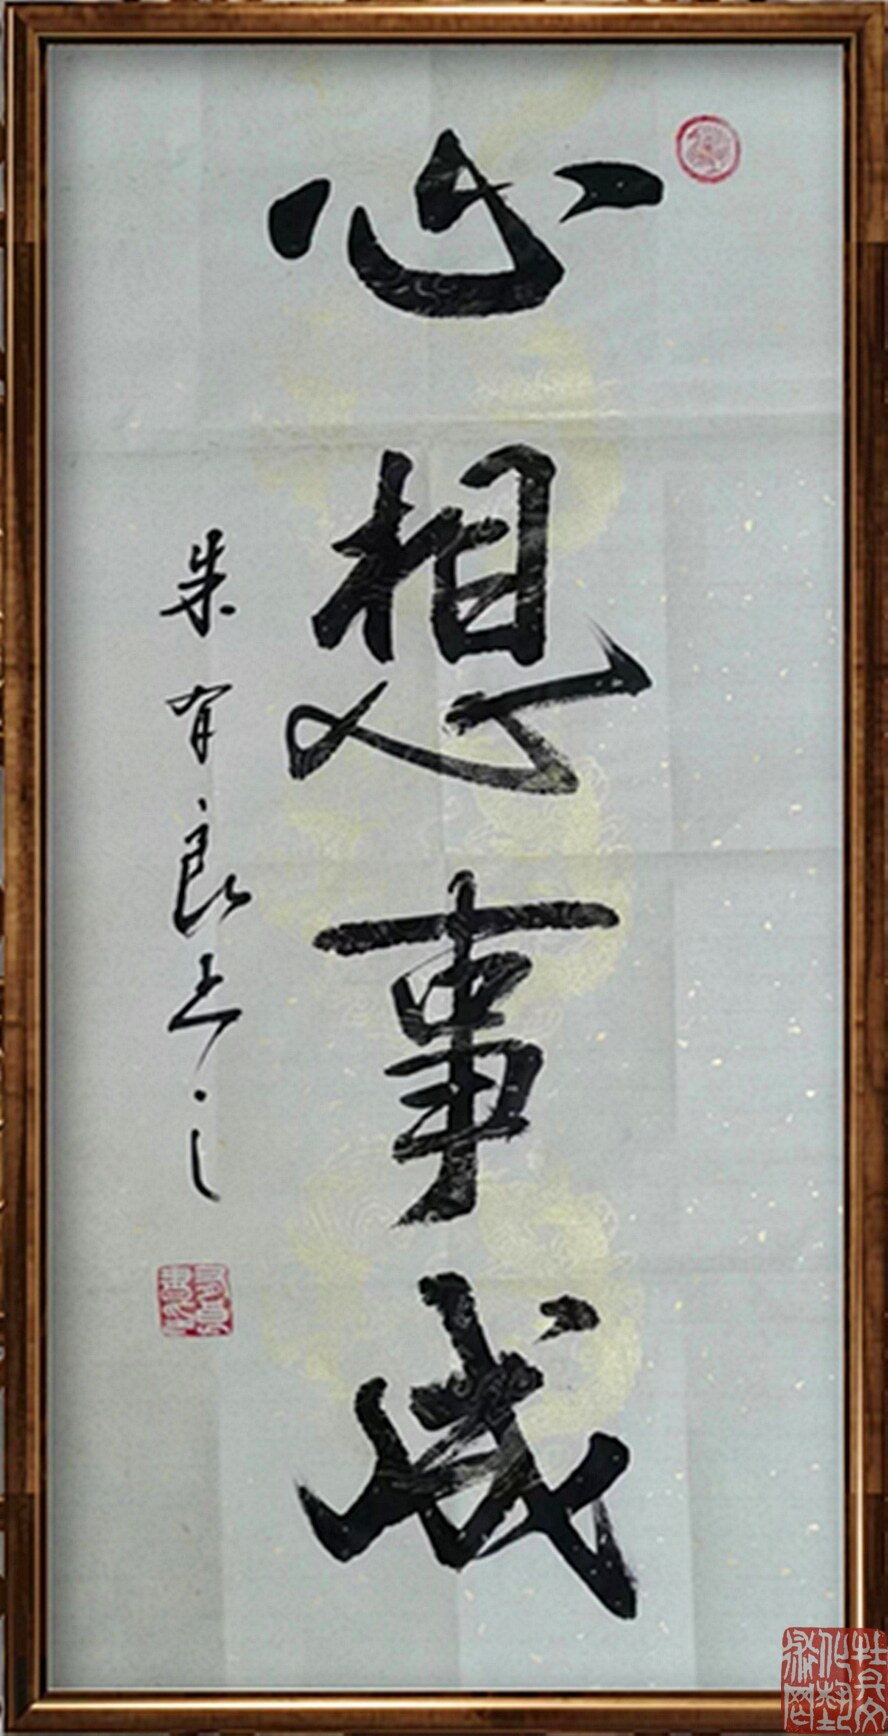 心想事成
朱有良书之